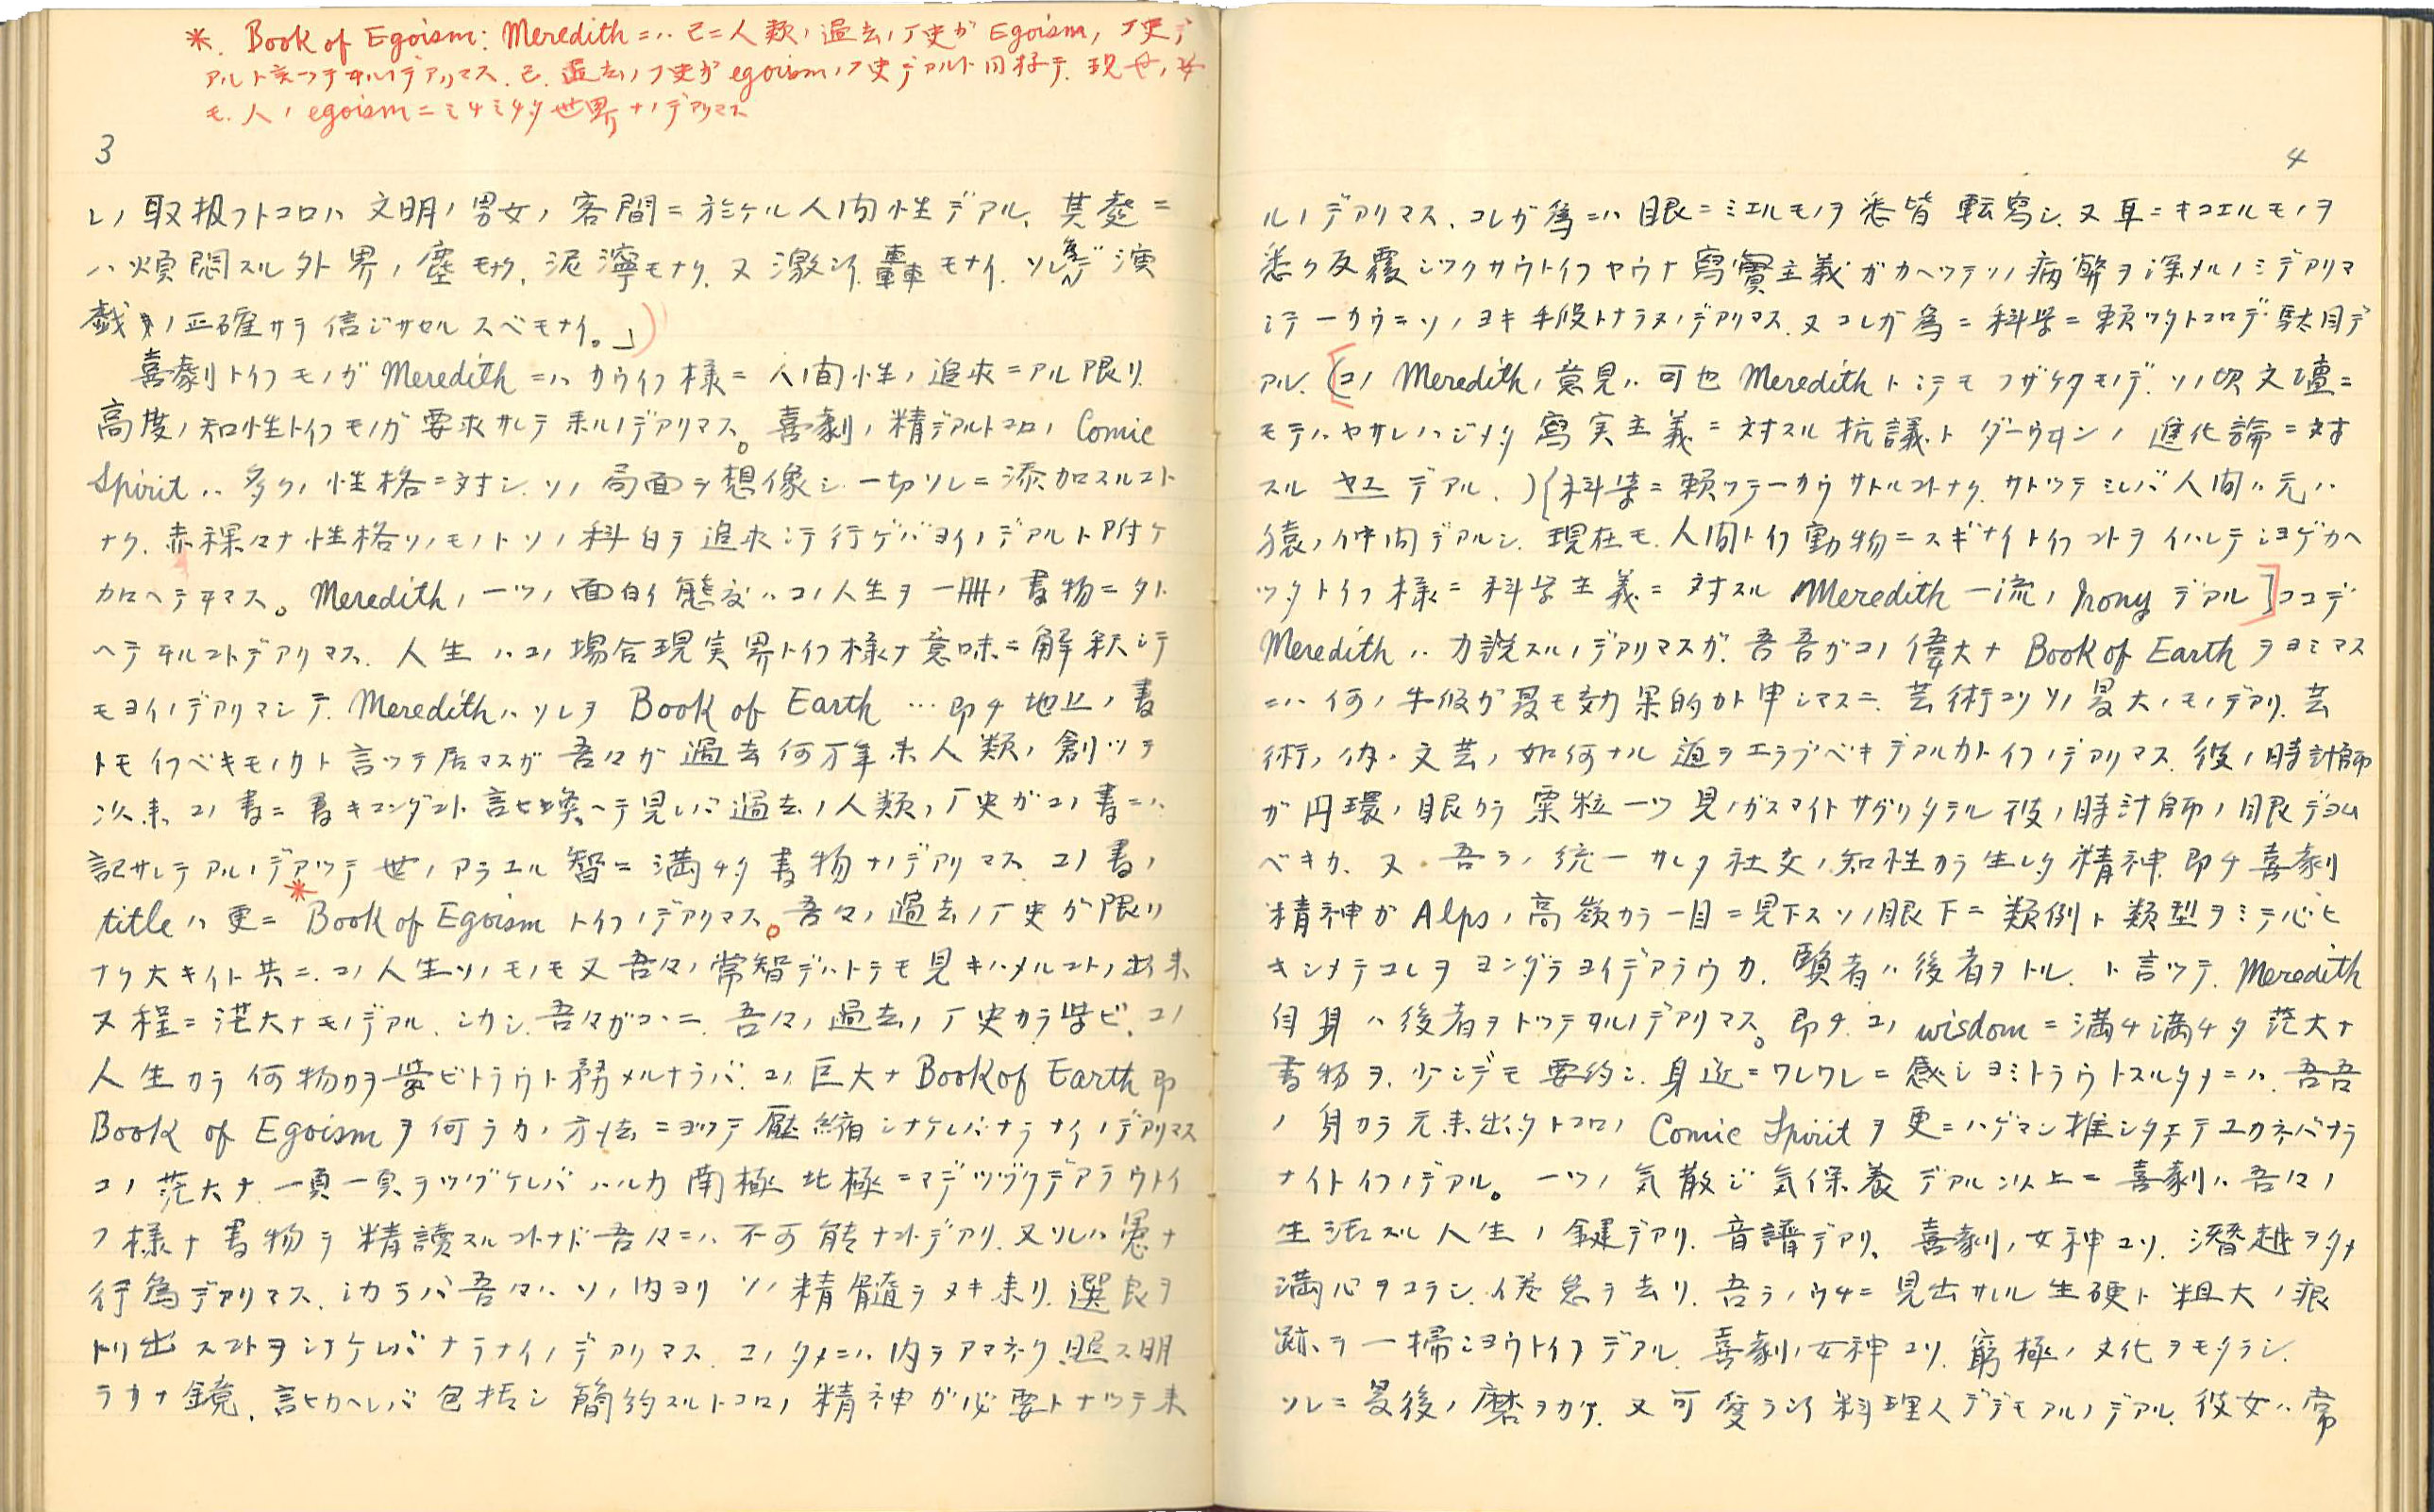 *. Book of Egoism: Meredith ニハ 己ニ人類ノ過去ノ丁史ガ Egoism ノ丁史デ
アルト言ツテヰルノデアリマス. 己ニ過去ノ丁史ガ egoism ノ丁史デアルト同様デ. 現世ノ
モ. 人ノ egoism ニミチミチタ世界ナノデアリマス
3
レノ取扱フトコロハ 文明ノ男女ノ客間ニ於ケル人間性デアル. 其処ニ
ハ煩悶スル外界ノ塵モナク. 泥濘モナク. 又激シイ轟モナイ. ソレ為ガ演
戯ノ正確サヲ信ジサセルスベモナイ。」
喜劇トイフモノガ Meredith ニハ カウイフ様ニ 人間性ノ追求ニアル限リ
高度ノ知性トイフモノガ要求サレテ来ルノデアリマス。喜劇ノ精デアルトコロノ Comic
Spirit ハ 多クノ性格ニ対シ. ソノ局面ヲ想像シ 一切ソレニ添加スルコト
ナク. 赤裸々ナ性格ソノモノトソノ科白ヲ追求シテ行ゲバヨイノデアルト附ケ
加ヘテヰマス。Meredith ノ一ツノ面白イ態度ハコノ人生ヲ一冊ノ書物ニタト
ヘテヰルコトデアリマス. 人生ハコノ場合現実界トイフ様ナ意味ニ解釈シテ
モヨイノデアリマシテ. Meredith ハソレヲ Book of Earth … 即チ地上ノ書
トモイフベキモノカト言ツテ居マスガ 吾々ガ過去何万年来人類ノ創ッテ
以来コノ書ニ書キコンダコト 言ヒ換ヘテ見レバ過去ノ人類ノ丁史ガコノ書ニハ
記サレテアルノデアツテ世ノアラユル智ニ満チタ書物ナノデアリマス. コノ書ノ
title ハ更ニ *Book of Egoism トイフノデアリマス。吾々ノ過去ノ丁史ガ限リ
ナク大キイト共ニ. コノ人生ソノモノモ又吾々ノ常智デハトテモ見キハメルコトノ出来
ヌ程ニ茫大ナモノデアル. シカシ. 吾々ガココニ. 吾々ノ過去ノ丁史カラ学ビ. コノ
人生カラ何物カヲ学ビトラウト努メルナラバ. コノ巨大ナ Book of Earth 即
Book of Egoism ヲ何ラカノ方法ニヨツテ圧縮シナケレバナラナイノデアリマス
コノ茫大ナ. 一頁一頁ヲツヅケレバ ハルカ南極北極ニマデツヅクデアラウトイ
フ様ナ書物ヲ精読スルコトナド吾々ニハ不可能ナコトデアリ. 又ソレハ愚ナ
行為デアリマス. シカラバ吾々ハソノ内ヨリ ソノ精髄ヲヌキ来リ. 選良ヲ
トリ出スコトヲシナケレバナラナイノデアリマス. コノタメニハ内ヲアマネク照ス明
ラカナ鏡. 言ヒカヘレバ包括シ簡約スルトコロノ精神ガ必要トナツテ来
4
ルノデアリマス. コレガ為ニハ眼ニミエルモノヲ悉皆転写シ. 又耳ニキコエルモノヲ
悉ク反覆シツクサウトイフヤウナ写実主義ガカヘツテソノ病弊ヲ深メルノミデアリマ
シテ一カウニソノヨキ手段トナラヌノデアリマス. 又コレガ為ニ科学ニ頼ツタトコロデ駄目デ
アル. (コノ Meredith ノ意見ハ可也 Meredith トシテモフザケタモノデ. ソノ頃文壇ニ
モテハヤサレハジメタ写実主義ニ対スル抗議トダーウヰンノ進化論ニ対
スル ヤユ デアル.) {科学ニ頼ツテ一カウサトルコトナク. サトツテミレバ人間ハ元ハ
猿ノ仲間デアルシ. 現在モ. 人間トイフ動物ニスギナイトイフコトヲイハレテシヨゲカヘ
ツタトイフ様ニ科学主義ニ対スル Meredith 一流ノ Irony デアル] ココデ
Meredith ハ力説スルノデアリマスガ. 吾吾ガコノ偉大ナ Book of Earth ヲヨミマス
ニハ何ノ手段ガ最モ効果的カト申シマスニ. 芸術コソソノ最大ノモノデアリ. 芸
術ノ内. 文芸ノ如何ナル道ヲエラブベキデアルカトイフノデアリマス. 彼ノ時計師
ガ円環ノ眼カラ粟粒一ツ見ノガスマイトサグリタテル彼ノ時計師ノ眼デヨム
ベキカ. 又. 吾ラノ統一サレタ社交ノ知性カラ生レタ精神. 即チ喜劇
精神ガ Alps ノ高嶺カラ一目ニ見下スソノ眼下ニ類例ト類型ヲミテ心ヒ
キシメテコレヲヨンダラヨイデアラウカ. 賢者ハ後者ヲトル. ト言ツテ. Meredith
自身ハ後者ヲトツテヰルノデアリマス。即チ. コノ wisdom ニ満チ満チタ茫大ナ
書物ヲ. 少シデモ要約シ. 身近ニワレワレニ感ジヨミトラウトスルタメニハ. 吾吾
ノ身カラ元来出タトコロノ Comic Spirit ヲ更ニハゲマシ推シタテテユカネバナラ
ナイトイフノデアル。一ツノ気散ジ気保養デアル以上ニ喜劇ハ吾々ノ
生活スル人生ノ鍵デアリ. 音譜デアリ、喜劇ノ女神コソ. 潜越ヲタメ
満心ヲコラシ. 倦怠ヲ去リ. 吾ラノウチニ見出サレル生硬ト粗大ノ痕
跡ヲ一掃シヨウトイフデアル. 喜劇ノ女神コソ. 窮極ノ文化ヲモタラシ.
ソレニ最後ノ磨ヲカケ. 又可愛ラシイ料理人デデモアルノデアル. 彼女ハ常